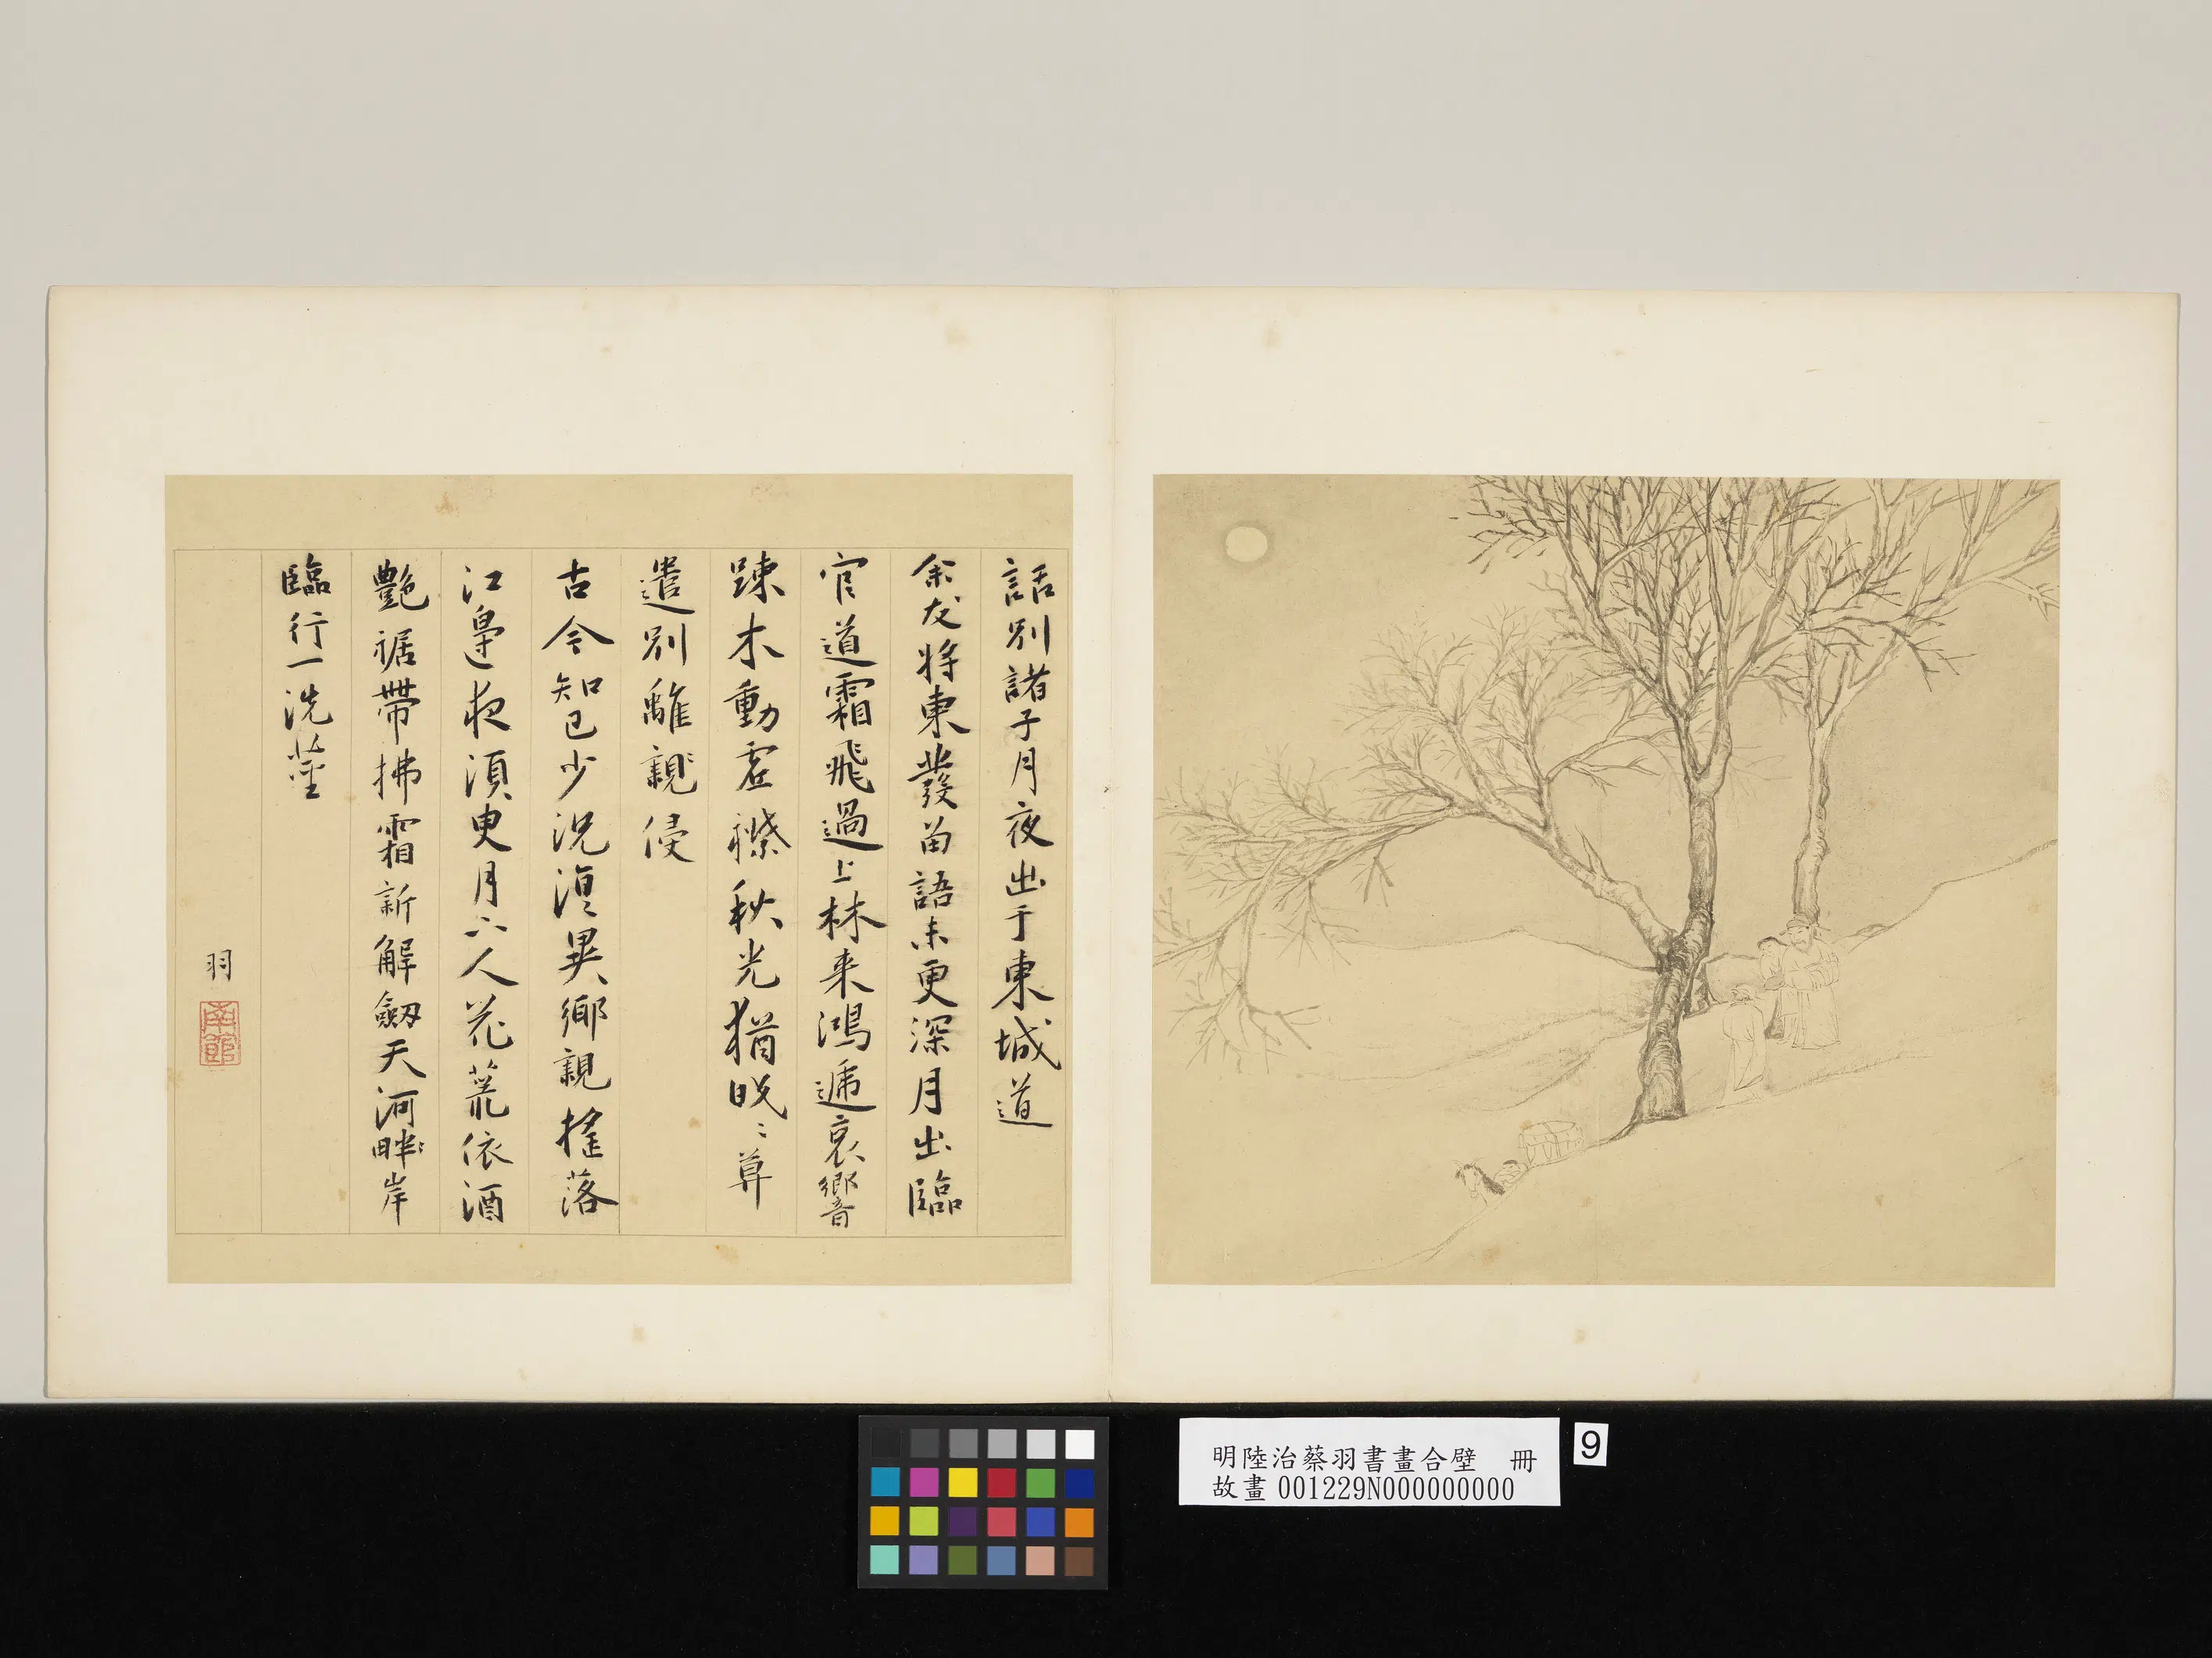 話別諸子月夜出于東城道
余友将東發笛語未更深月出臨
官道霜飛過上林来鴻遞哀響
踈木動虛襟秋光猶晚〻尊
遣別離親侵
古今知已少況復異鄉親搖落
江皐夜須臾月下人花荒依酒
艷裾帶拂霜新解劔天河畔岸
臨行一洗塵
羽
南館
明陸治蔡羽書畫合璧 冊
故畫 001229N000000000
9